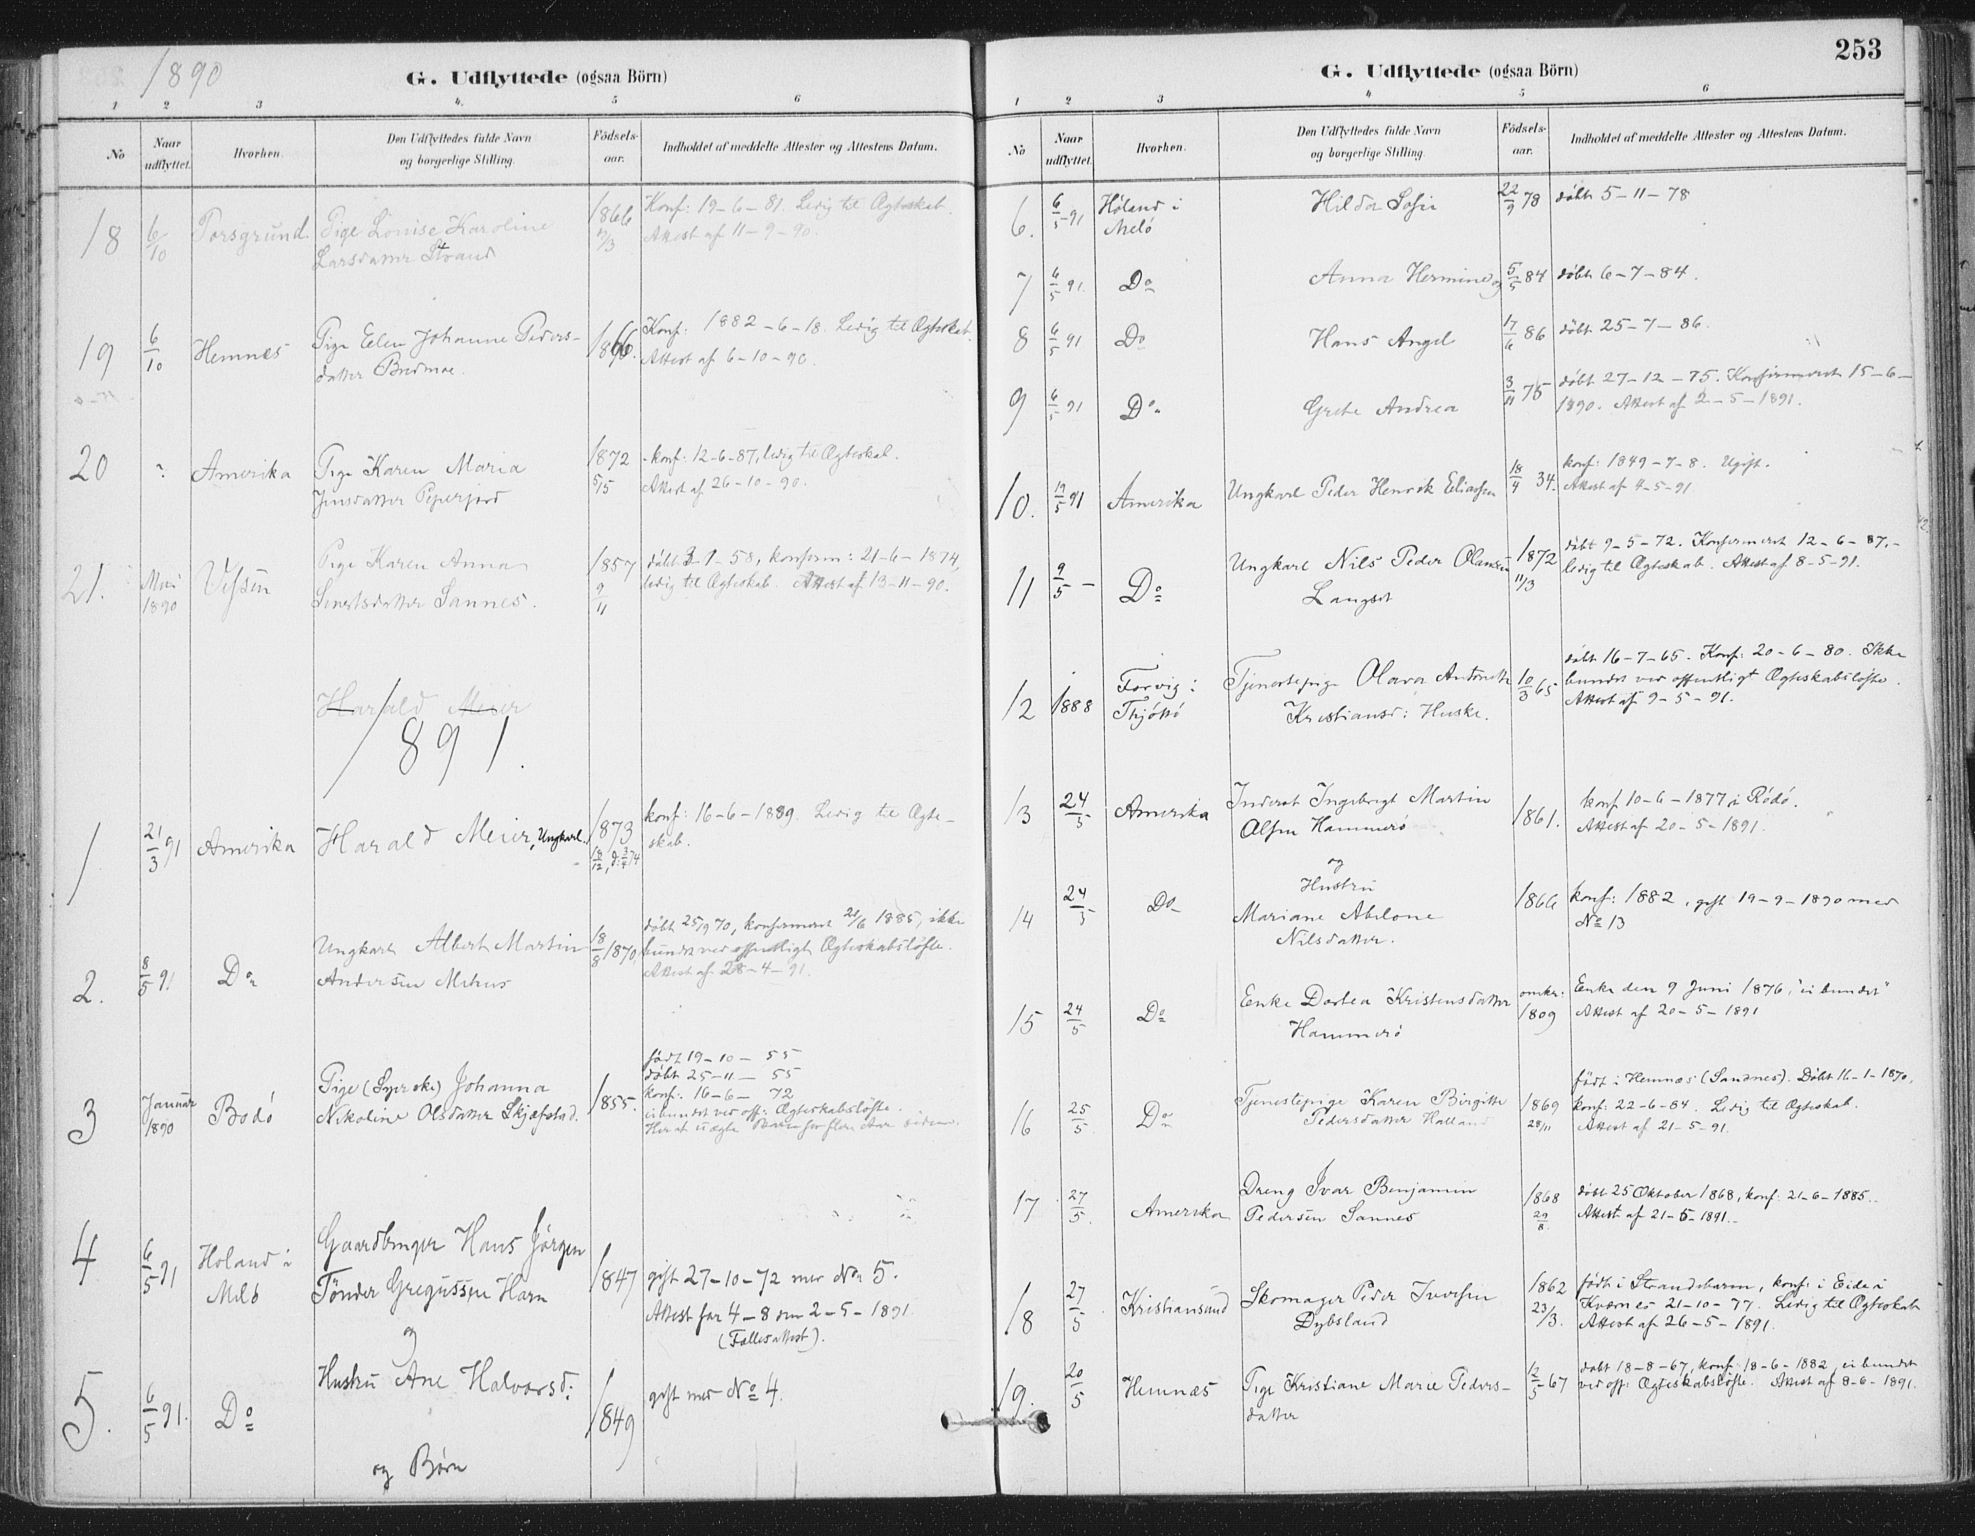 1890
G. Udflyttede (ogsaa Börn)
1 2 3 4. 5 6
No Naar udflyttet. Hvorhen. Den Udflyttedes fulde Navn og borgerlige Stilling. Födsels-aar. Indholdet af meddelte Attester og Attestens Datum.
18 6/10 Porsgrund. Pige Lovise Karoline 1866 Konf: 19-6-81. Ledig til Ægteskab.
Larsdatter Strand /3 Attest af 11-9-90.
19 6/10 Hemnes Pige Elen Johanne Peders- Konf. 1882-6-18. Ledig til Ægteskab.
datter Attest af 6-10-90.
20 " Amerika Pige Karen Maria 1872 konf: 12-6-87, ledig til Ægteskab.
Jensdatter 5/5 Attest af 26-10-90.
21. Mai 1890 Vefsen Pige Karen Anna 1857 døbt 3-1-58, konferm: 21-6-1874,
Sannes. 9/11 ledig til Ægteskab. Attest af 13-11-90.
Harald Meier
1891.
1 21/3 91 Amerika Harald Meier, Ungkarl. 1873 konf: 16-6-1889. Ledig til Ægte-
skab.
2. 8/5 91 Do Ungkarl Albert Martin 18/8 1870 døbt 25/9 70, konfirmeret 21/6 1885, ikke
Andersen bundet ved offentligt Ægteskabsløfte.
Attest af 28-4-91.
født 19-10-55
døbt 25-11-55
3 Januar 1890 Bodö Pige (Syerske) Johanna 1855. konf: 16-6-72
Nikoline Olsdatter ei bundet ved off: Ægteskabsløfte.
Har et uægte Barn for flere Aar siden.
4 6/5 91 Høland i Gaardbruger Hans Jörgen 1847 gift 27-10-72 med No 5.
Melö Tönder Gregussen Attest for 4-8 den 2-5-1891
(Fællesattest).
og
5. 6/5 91. Do Hustru Ane Halvorsd: 1849 gift med No 4.
og Børn
253
G. Udflyttede (ogsaa Börn)
1 2 3 4 5 6
No Naar udflyttet. Hvorhen. Den Udflyttedes fulde Navn og borgerlige Stilling. Födsels-aar. Indholdet af meddelte Attester og Attestens Datum.
6. 6/5-91 Høland i Hilda Sofie 22/9 78 døbt 5-11-78
Melö
7 6/5 91. Do Anna Hermine og 5/5 84 døbt 6-7-84.
8 6/5 91 Do Hans Angel 17/6 86 døbt 25-7-86.
9 6/5 91 Do Grete Andrea 3/11 75 døbt 27-12-75. Konfirmeret 15-6-
1890. Attest af 2-5-1891.
10. 19/5 91 Amerika Ungkarl Peder Henrik Eliassen 18/4 34. konf: 1849-7-8. Ugift.
Attest af 4-5-91
11 9/5 - Do Ungkarl Nils Peder Olausen 1872 døbt 9-5-72. Konfirmeret 12-6-87,-
Langset 11/3 ledig til Ægteskab. Attest af 8-5-91.
12 1888 Forvig i Tjenestepige Olava Antonette 10/3 65 døbt 16-7-65. Konf: 20-6-80. Ikke
Thjøttö Kristiansd: Huske. bundet ved offentligt Ægteskabsløfte.
Attest af 9-5-91.
13 24/5 Amerika Inderst Ingebrigt Martin 1861. konf 10-6-1877 i Rödö.
Olsen Hammerö Attest af 20-5-1891.
og
Hustru
14 24/5 Do Mariane Abelone 1866 konf: 1882, gift 19-9-1890 med
Nilsdatter. No 13
15 24/5 Do Enke Dortea Kristensdatter omkr: 1809 Enke den 9 Juni 1876, "ei bundet"
Hammerö Attest af 20-5-1891
født i Hemnæs (Sandnes). Døbt 16-1-1870,
16 25/5 Do Tjenestepige Karen Birgitte 1869 konf: 22-6-84. Ledig til Ægteskab.
Pedersdatter Halland 28/11 Attest af 21-5-91.
17 27/5. Amerika Dreng Ivar Benjamin 1868 døbt 25 Oktober 1868, konf: 21-6-1885.
Pedersen Sannes 29/8. Attest af 21-5-1891.
18 27/5 Kristiansund Skomager Peder Iversen 1862 født i Strandebarm, konf: i Eide i
Dybsland 23/3. Kværnes 21-10-77. Ledig til Ægteskab
Attest af 26-5-1891.
19. 20/5 Hemnæs Pige Kristiane Marie Peders- 12/5-67 døbt 18-8-67, konf: 18-6-1882, ei bundet
datter ved off: Ægteskabsløfte. Attest af 8-6-1891.